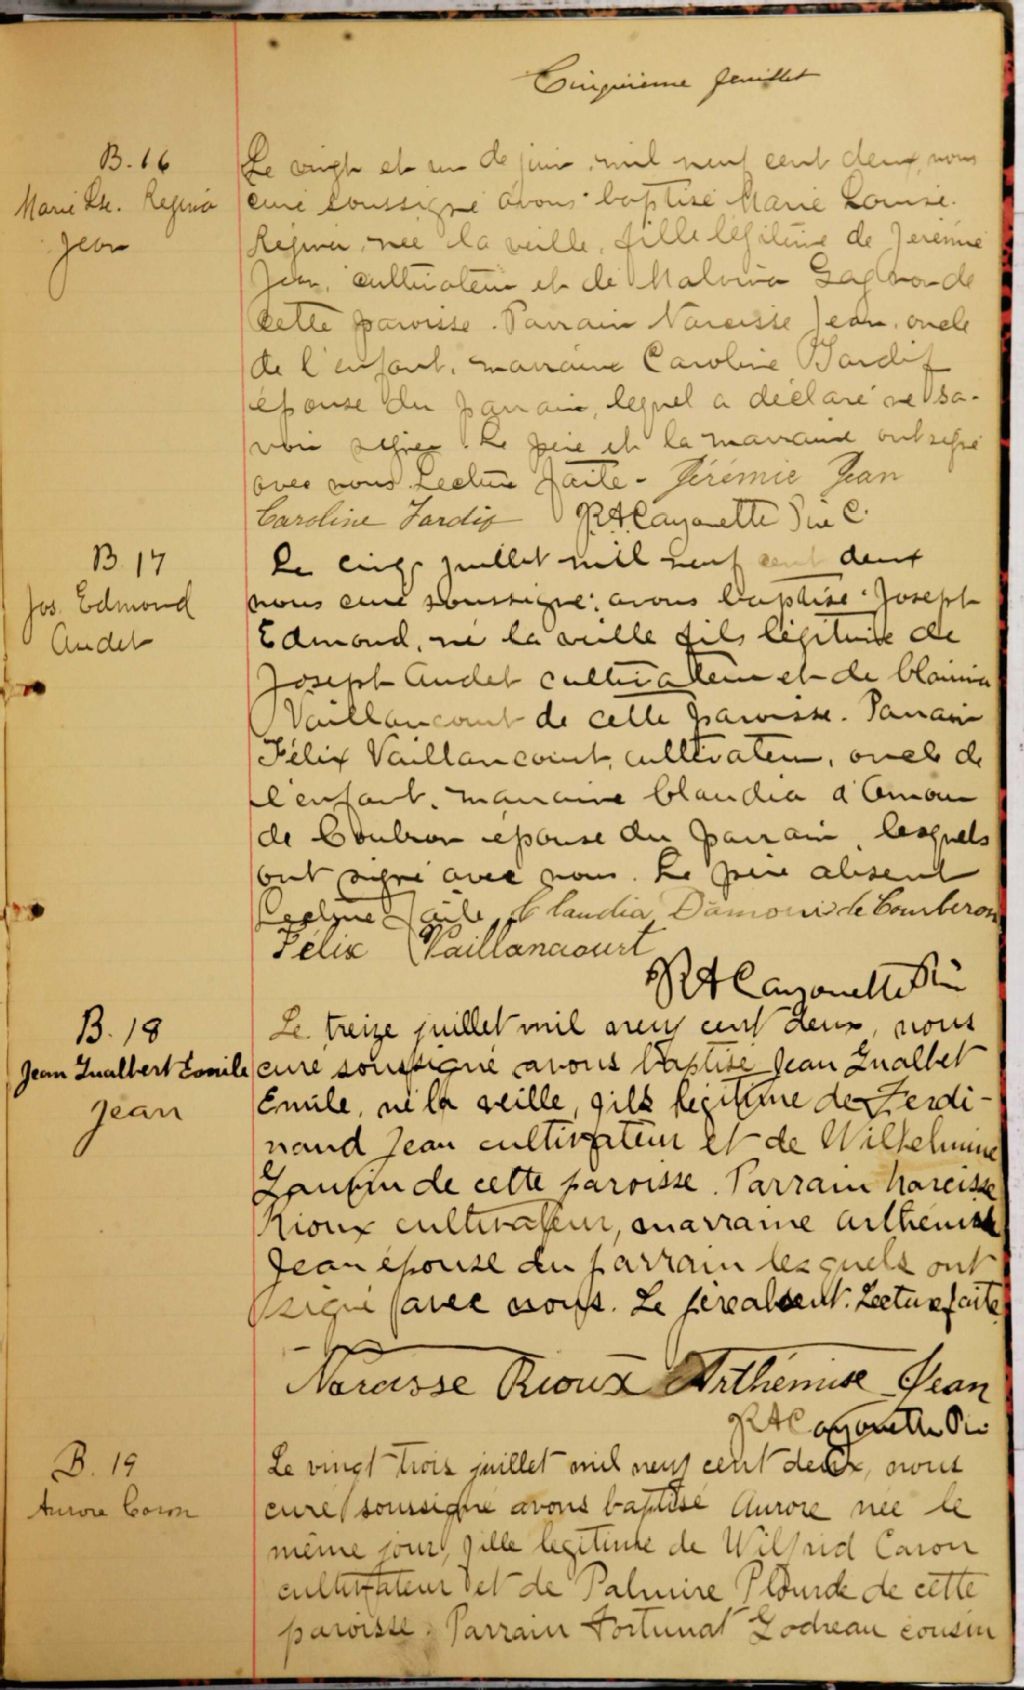 Cinquième feuillet
B. 16
Marie Lse. Regina
Jean
Le vingt et un de juin mil neuf cent deux, nous
curé soussigné avons baptisé Marie Louise
Régina, née la veille, fille légitime de Jérémie
Jean, cultivateur et de Malvina Gagnon de
cette paroisse. Parrain Narcisse Jean, oncle
de l'enfant, marraine Caroline Tardif
épouse du parrain, lequel a déclaré ne sa-
voir signer. Le père et la marraine ont signé
avec nous. Lecture faite - Jérémie Jean
Caroline Tardif R A Cayouette Ptre C.
B 17
Jos. Edmond
Audet
Le cinq juillet mil neuf cent deux
nous curé soussigné avons baptisé Joseph
Edmond, né la veille fils légitime de
Joseph Audet cultivateur et de
Vaillancourt de cette paroisse. Parrain
Félix Vaillancourt, cultivateur, oncle de
l'enfant, marraine Claudia d'Amour
de Coubron épouse du parrain, lesquels
ont signé avec nous. Le père absent
Lecture faite Claudia Damour de Courberon
Félix Vaillancourt
R A Cayouette Ptre
B. 18
Jean Gualbert Emile
Jean
Le treize juillet mil neuf cent deux, nous
curé soussigné avons baptisé Jean Gualbet
Emile, né la veille, fils légitime de Ferdi-
nand Jean cultivateur et de Wilhelmine
Gauvin de cette paroisse. Parrain Narcisse
Rioux cultivateur, marraine Arthémise
Jean épouse du parrain lesquels ont
signé avec nous. Le père absent. Lecture faite
Narcisse Rioux Arthémise Jean
R A Cayouette Ptre
B. 19
Aurore Caron
Le vingt-trois juillet mil neuf cent deux, nous
curé soussigné avons baptisé Aurore née le
même jour, fille legitime de Wilfrid Caron
cultivateur et de Palmire Plourde de cette
paroisse. Parrain Fortunat Godreau cousin